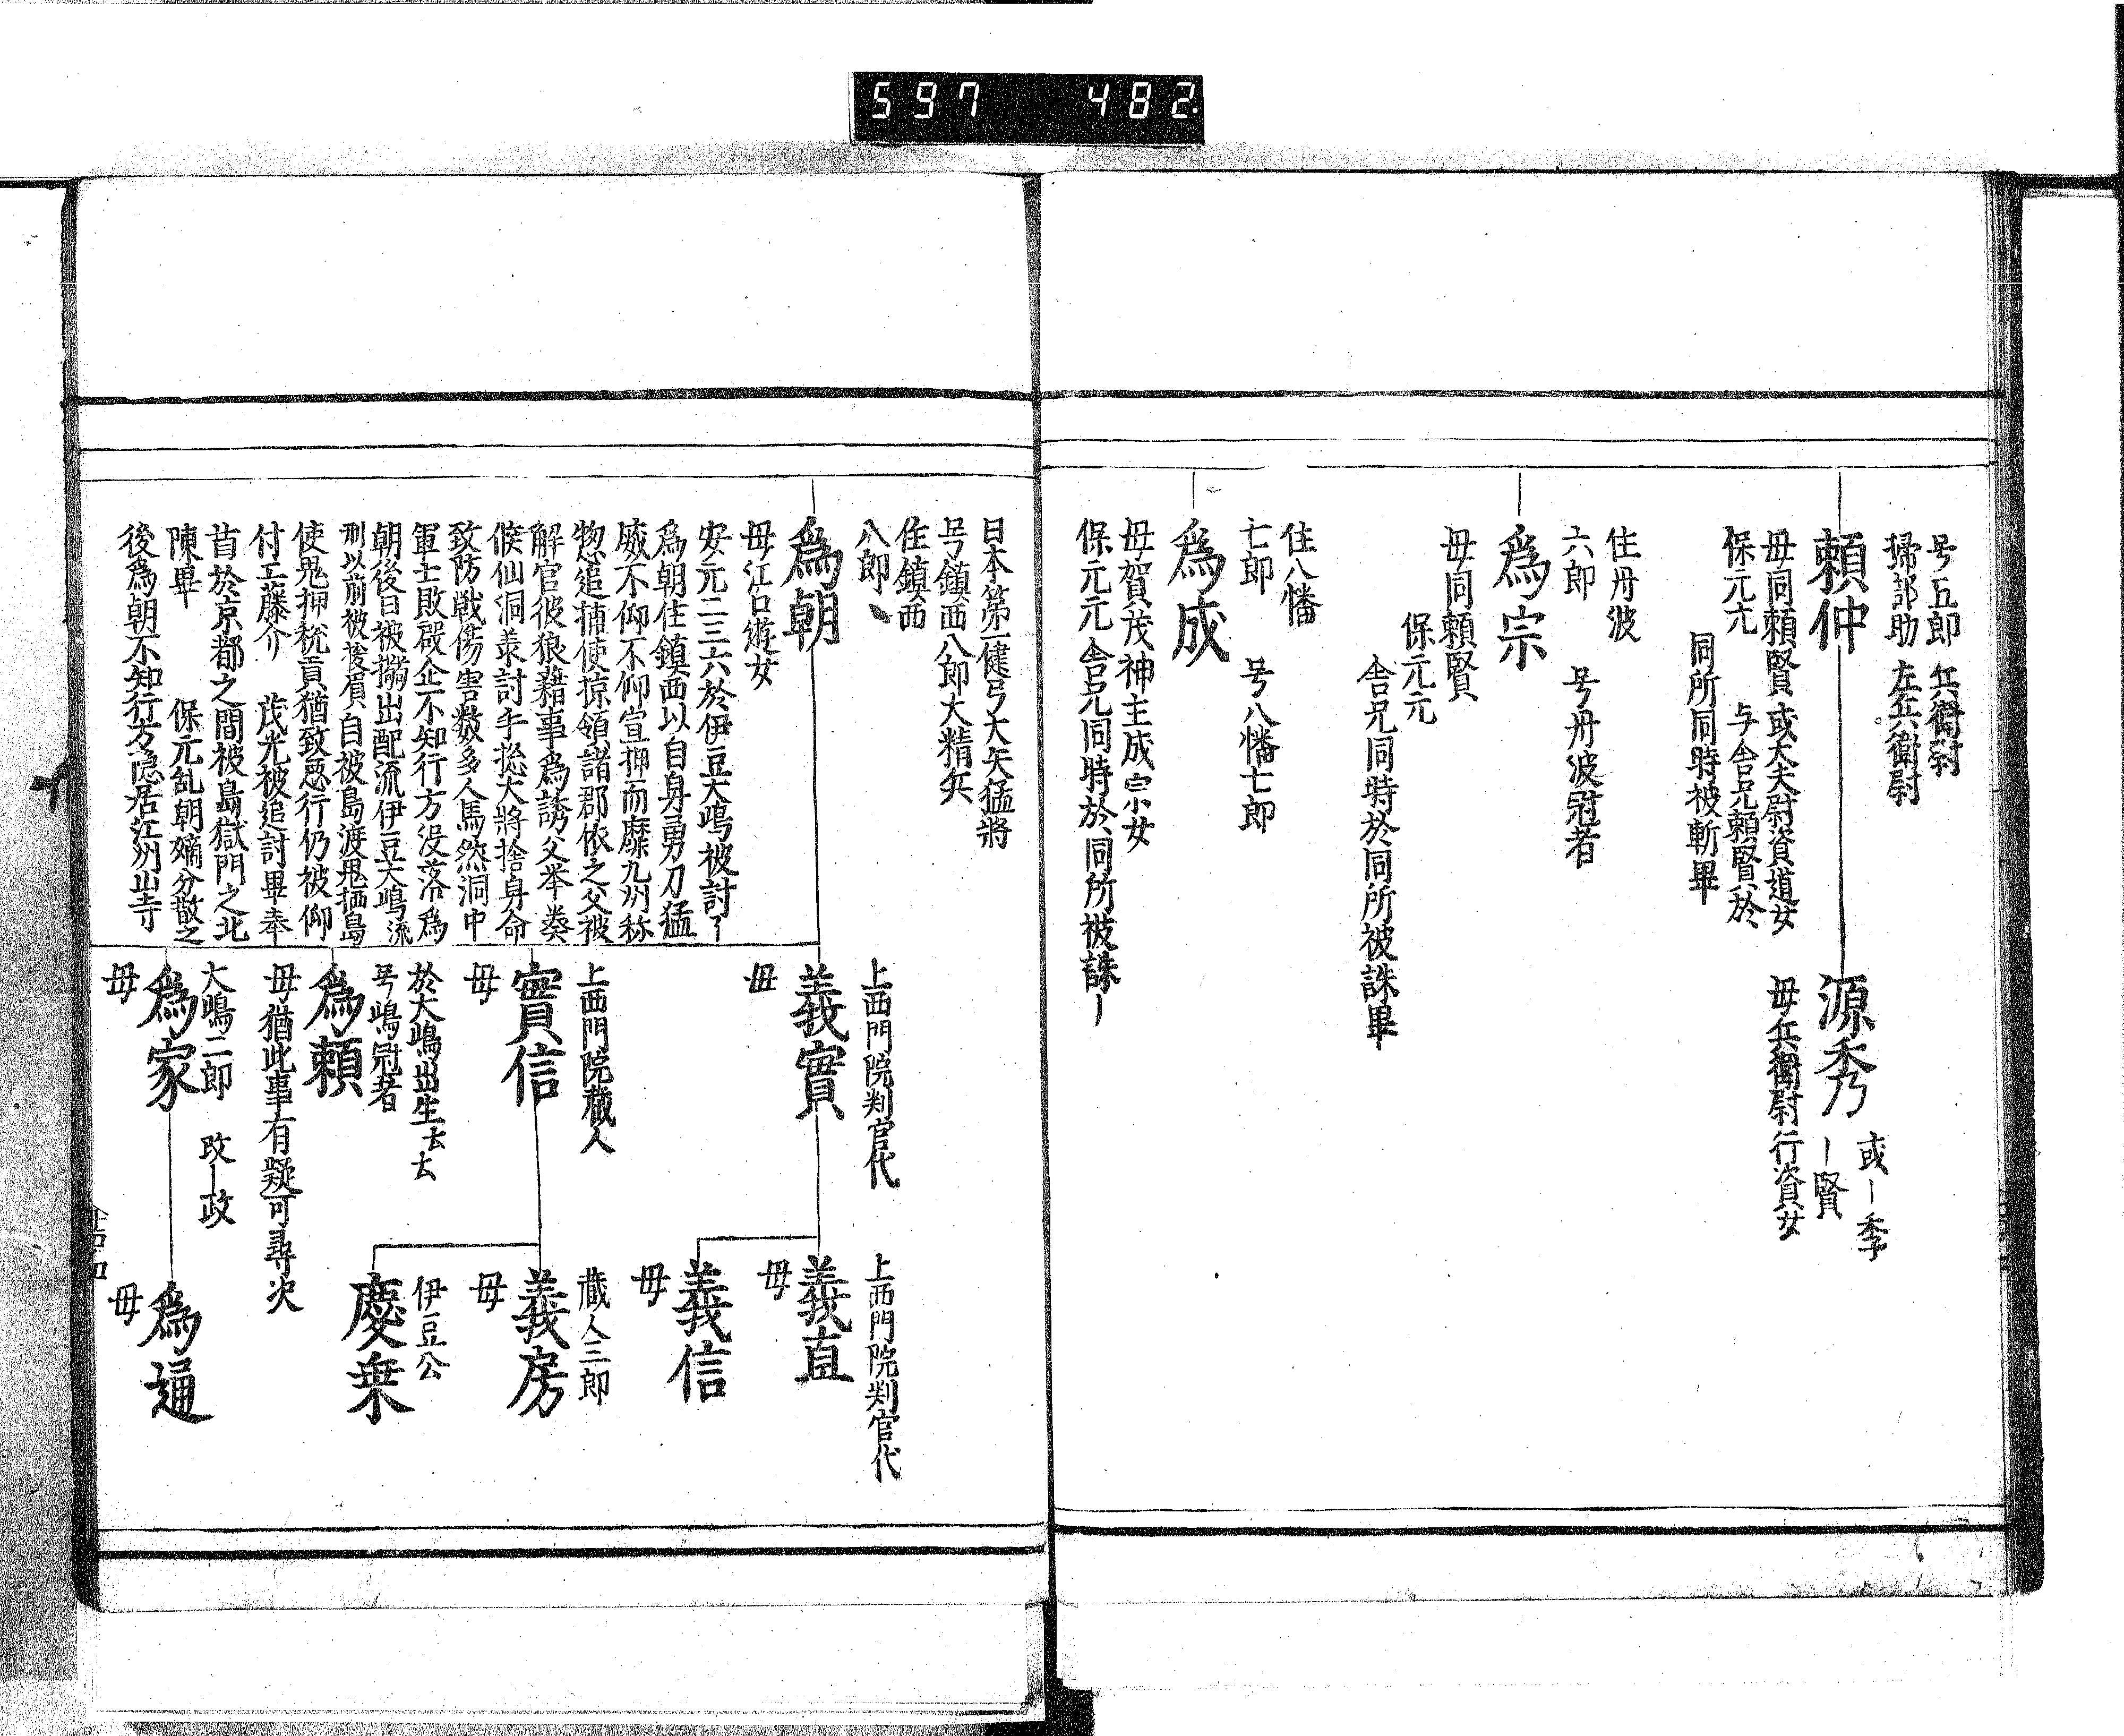 597 482
号五郎 兵衛尉
掃部助 左兵衛尉
頼仲
母同頼賢 或大夫尉資道女
保元元 与舎兄頼賢於
同所同時被斬畢
源秀
或ー季
ー賢
母兵衛尉行資女
住丹波
六郎 号丹波冠者
為宗
母同頼賢
保元元
舎兄同時於同所被誅畢
住八幡
七郎 号八幡七郎
為成
母賀茂神主成宗女
保元元 舎兄同時於同所被誅ー
日本第一健弓大矢猛將
号鎮西八郎大精兵
住鎮西
八郎
為朝
母江口遊女
安元二三六於伊豆大嶋被討ー
為朝住鎮西以自身勇力猛
威不仰不仰宣押而靡九州称
惣追捕使掠領諸郡依之父被
解官彼狼藉事為誘父挙奏
候仙洞兼討手捴大將捨身命
致防戦傷害数多人馬然洞中
軍士敗 企不知行方没落為
朝後日被搦出配流伊豆大嶋流
刑以前被 自被島渡鬼栖島
使鬼押税貢猶致悪行仍被仰
付工藤介 茂光被追討畢奉
首於京都之間被島獄門之北
陳畢 保元乱朝嫡分散之
後為朝不知行方隠居江州山寺
上西門院判官代
義實
母
上西門院判官代
義直
母
義信
母
上西門院蔵人
實信
母
蔵人三郎
義房
母
伊豆公
慶乗
於大嶋出生云云
号嶋冠者
為頼
母猶此事有疑可尋次
大嶋二郎 改ー政
為家
母
為通
母